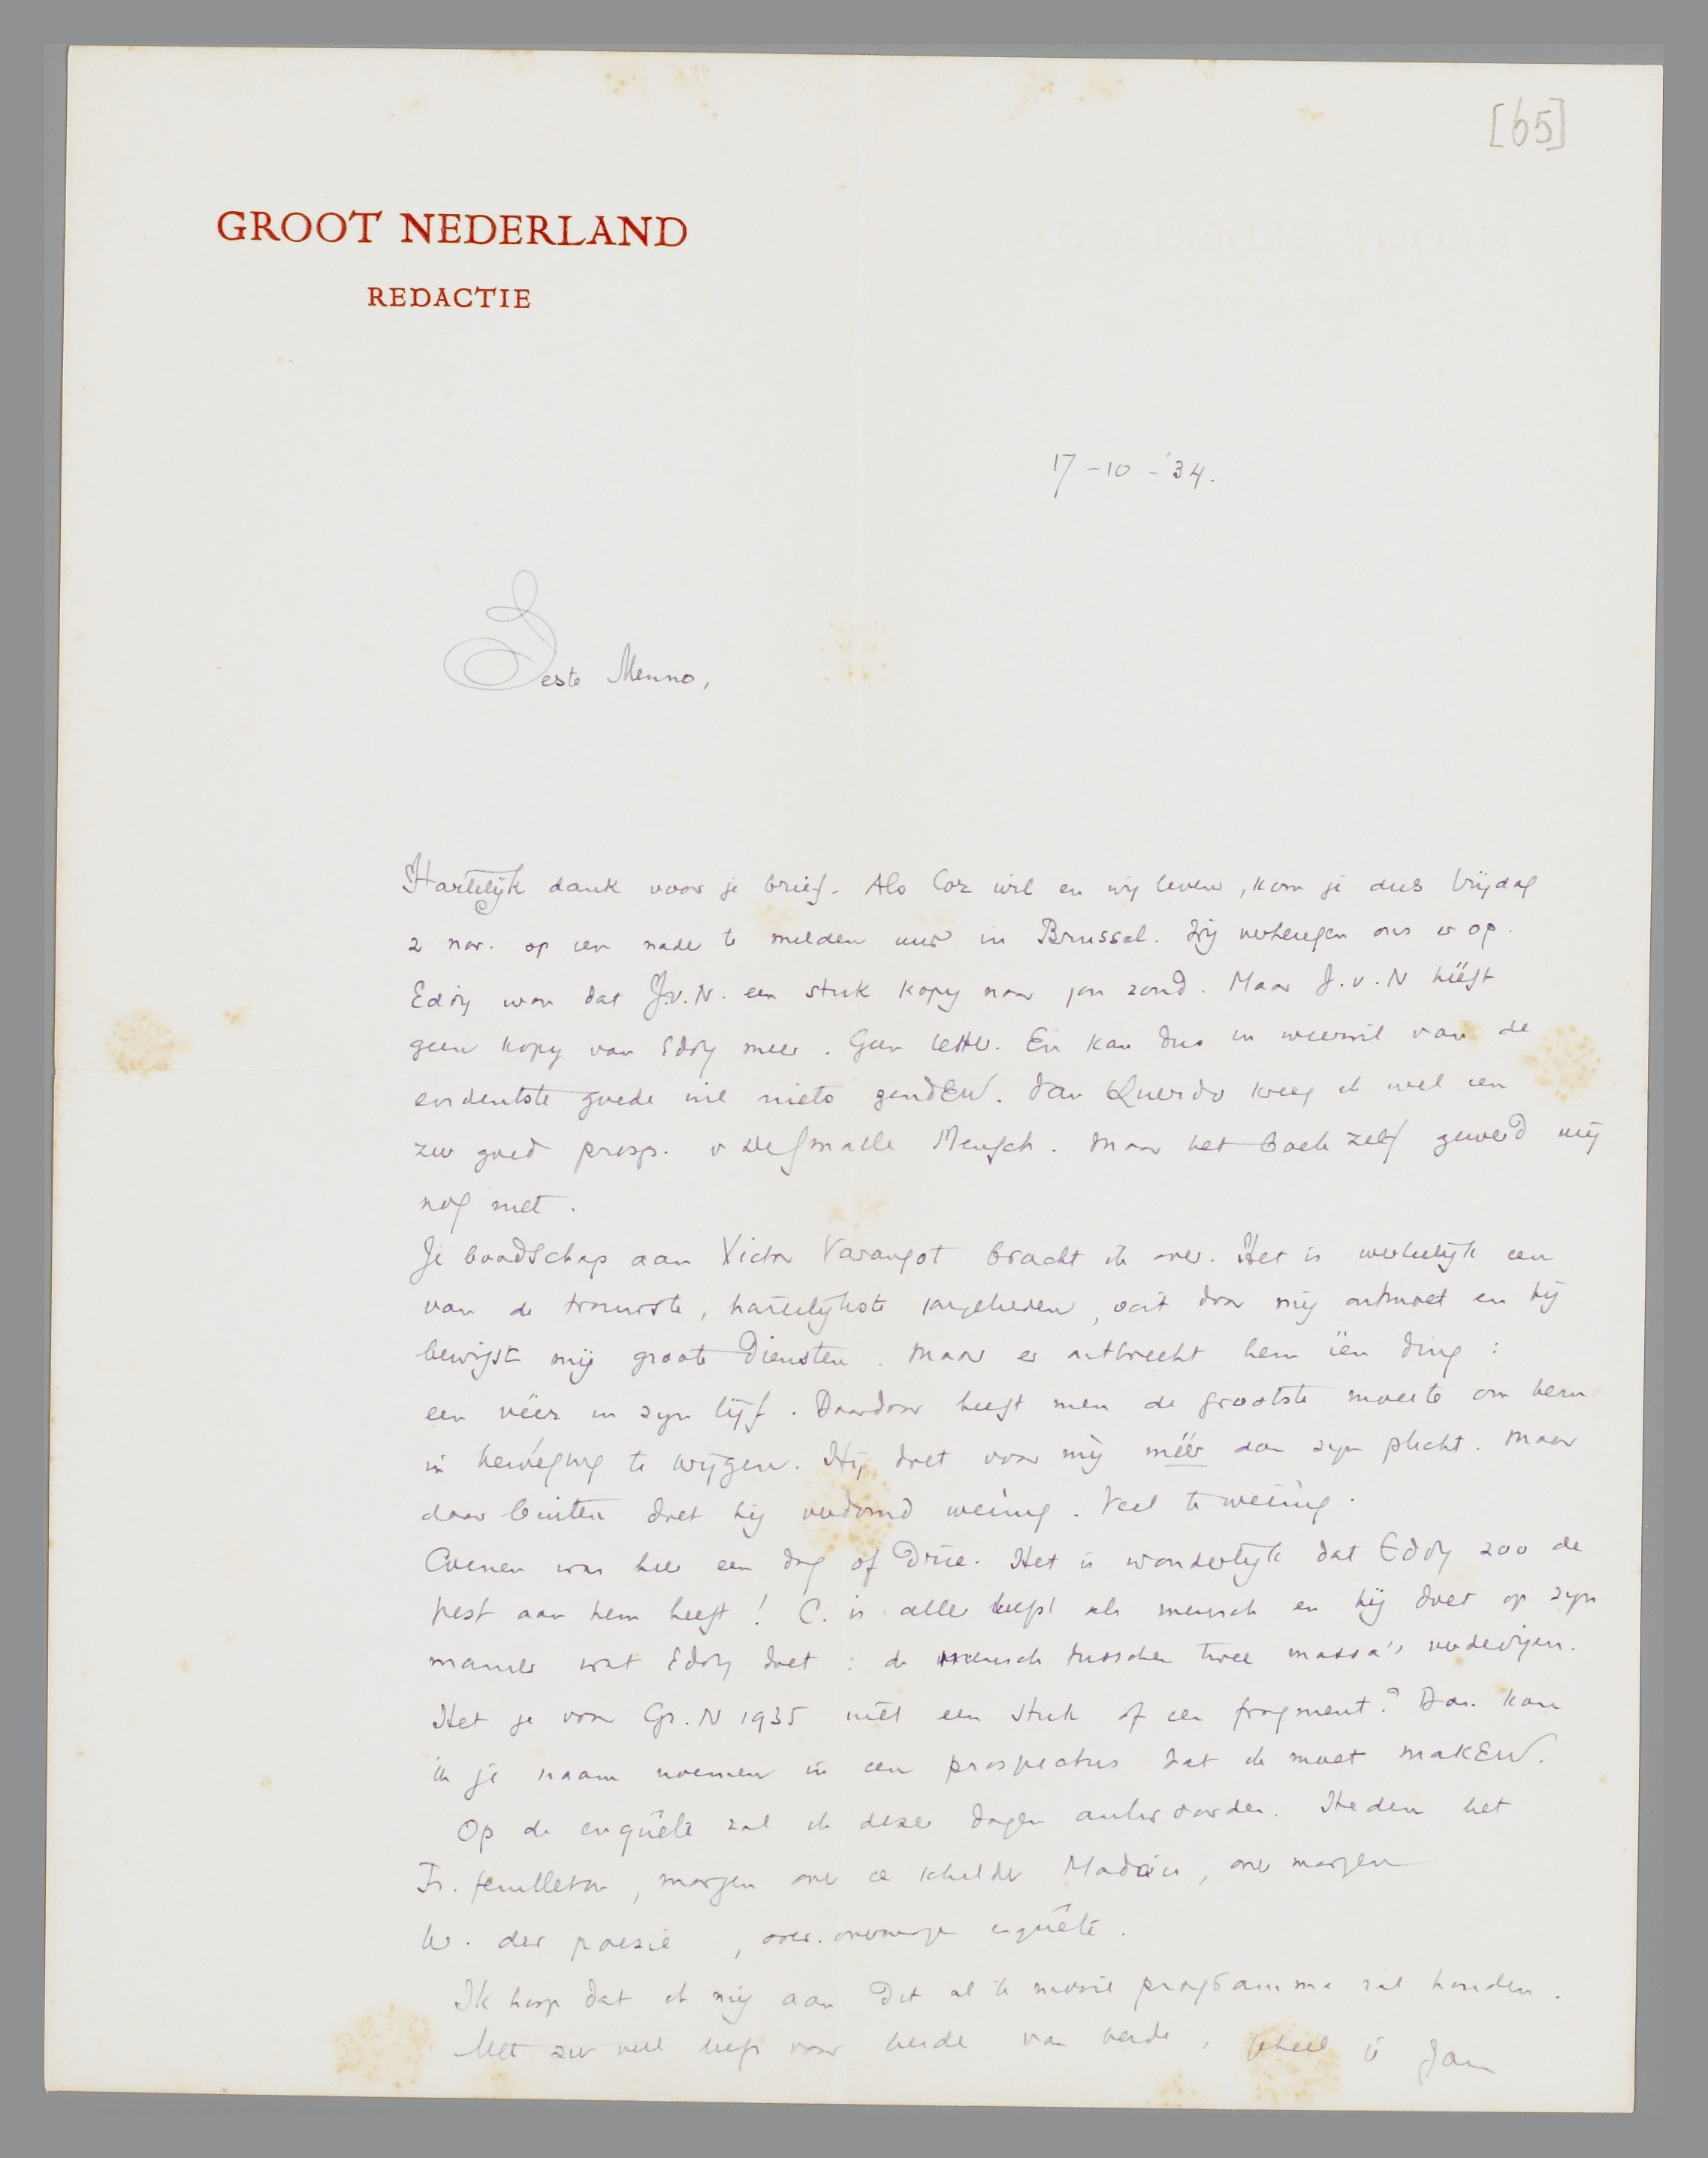 [65]
GROOT NEDERLAND
REDACTIE
17-10-'34.
Beste Menno,
Hartelijk dank voor je brief. Als Coz wil en wij leven, kom je dus Vrijdag
2 nov. op een nader te melden uur in Brussel. Wij verheugen ons er op.
Eddy wou dat J.v.N. een stuk kopy naar jou zond. Maar J.v.N heéft
geen kopy van Eddy meer. Geen letter. En kan dus in weerwil van de
evidentste goede wil niets zendEN. Van Querido kreeg ik wel een
zeer goed prosp. v De Smalle Mensch. Maar het boek zelf geword mij
nog niet.
Je boodschap aan Victor Varangot bracht ik over. Het is werkelijk een
van de trouwste, hartelijkste jongelieden, ooit door mij ontmoet en hij
bewijst mij groote diensten. Maar er ontbreekt hem één ding:
een véér in zijn lijf. Daardoor heeft men de grootste moeite om hem
in beweging te krijgen. Hij doet voor mij méér dan zijn plicht. Maar
daar buiten doet hij verdomd weinig. Veel te weinig.
Coenen was hier een dag of drie. Het is wonderlijk dat Eddy zoo de
pest aan hem heeft! C. is aller liefst als mensch en hij doet op zijn
manier wat Eddy doet: de mensch tusschen twee massa's verdedigen.
Het je voor Gr.N 1935 niét een stuk of een fragment? Dan kan
ik je naam noemen in een prospectus dat ik moet makEN.
Op de enquête zal ik dezer dagen antwoorden. Heden het
Fr. feuilleton, morgen over de schilder Madain, over morgen
kr. der poezie, over. overmorgen enquête.
Ik hoop dat ik mij aan dit al te mooie programma zal houden.
Met zeer veel liefs voor beide van beide, geheel je Jan